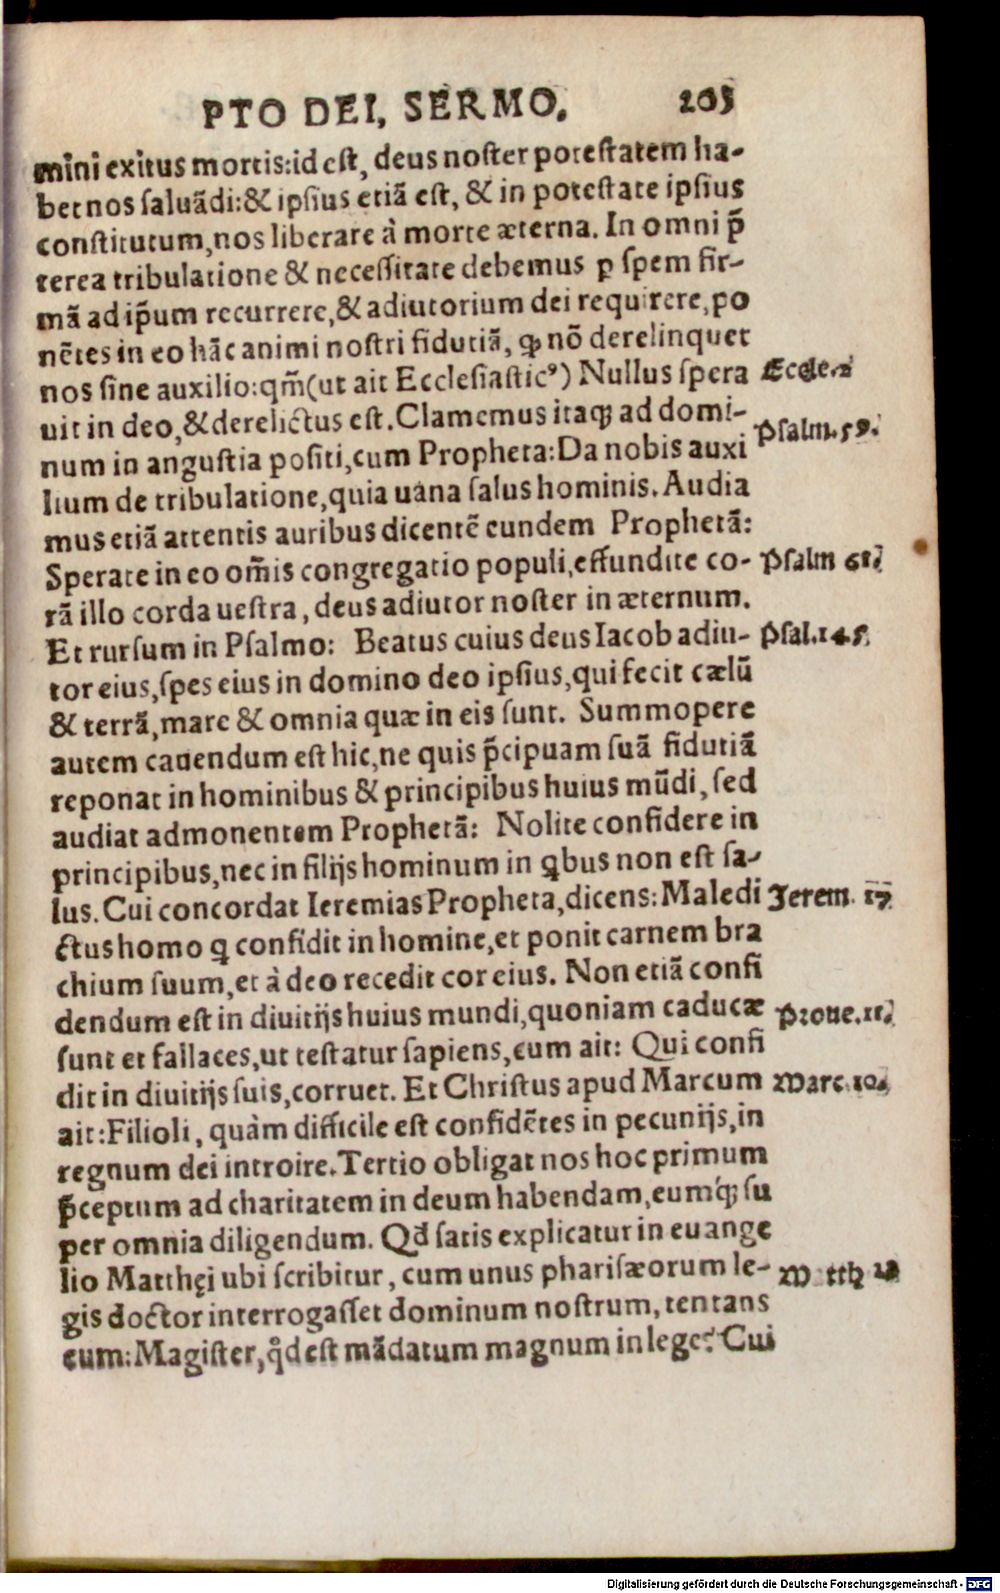 PTO DEI, SERMO. 205
mini exitus mortis:id est, deus noster potestatem ha-
bet nos saluãdi:& ipsius etiã est, & in potestate ipsius
constitutum,nos liberare à morte æterna. In omni p̃
terea tribulatione & necessitate debemus ꝑ spem fir-
mã ad ip̃um recurrere,& adiutorium dei requirere,po
nẽtes in eo hãc animi nostri fidutiã, ꝙ nõ derelinquet
nos sine auxilio:qm̃(ut ait Ecclesiasticꝰ) Nullus spera
Eccle.2
uit in deo,& derelictus est. Clamemus itaqꝫ ad domi-
num in angustia positi,cum Propheta:Da nobis auxi
Psalm.59.
lium de tribulatione,quia uana salus hominis. Audia
mus etiã attentis auribus dicentẽ eundem Prophetã:
Sperate in eo om̃is congregatio populi,effundite co-
Psalm 61.
rã illo corda uestra, deus adiutor noster in æternum.
Et rursum in Psalmo: Beatus cuius deus Iacob adiu-
Psal.145.
tor eius,spes eius in domino deo ipsius,qui fecit cælũ
& terrã,mare & omnia quæ in eis sunt. Summopere
autem cauendum est hic,ne quis p̃cipuam suã fidutiã
reponat in hominibus & principibus huius mũdi, sed
audiat admonentem Prophetã: Nolite confidere in
principibus,nec in filijs hominum in ꝗbus non est sa-
lus. Cui concordat Ieremias Propheta,dicens: Maledi
Jerem. 17
ctus homo ꝗ confidit in homine,et ponit carnem bra
chium suum,et à deo recedit cor eius. Non etiã confi
dendum est in diuitijs huius mundi,quoniam caducæ
Proue.11.
sunt et fallaces,ut testatur sapiens,cum ait: Qui confi
dit in diuitijs suis,corruet. Et Christus apud Marcum
Marc.10.
ait:Filioli, quàm difficile est confidẽtes in pecunijs,in
regnum dei introire.Tertio obligat nos hoc primum
p̃ceptum ad charitatem in deum habendam,eumq́ꝫ su
per omnia diligendum. Qd̃ satis explicatur in euange
lio Matthęi ubi scribitur, cum unus pharisæorum le-
M tth 22
gis doctor interrogasset dominum nostrum, tentans
eum:Magister,qd̃ est mãdatum magnum in lege? Cui
Digitalisierung gefördert durch die Deutsche Forschungsgemeinschaft - DFG